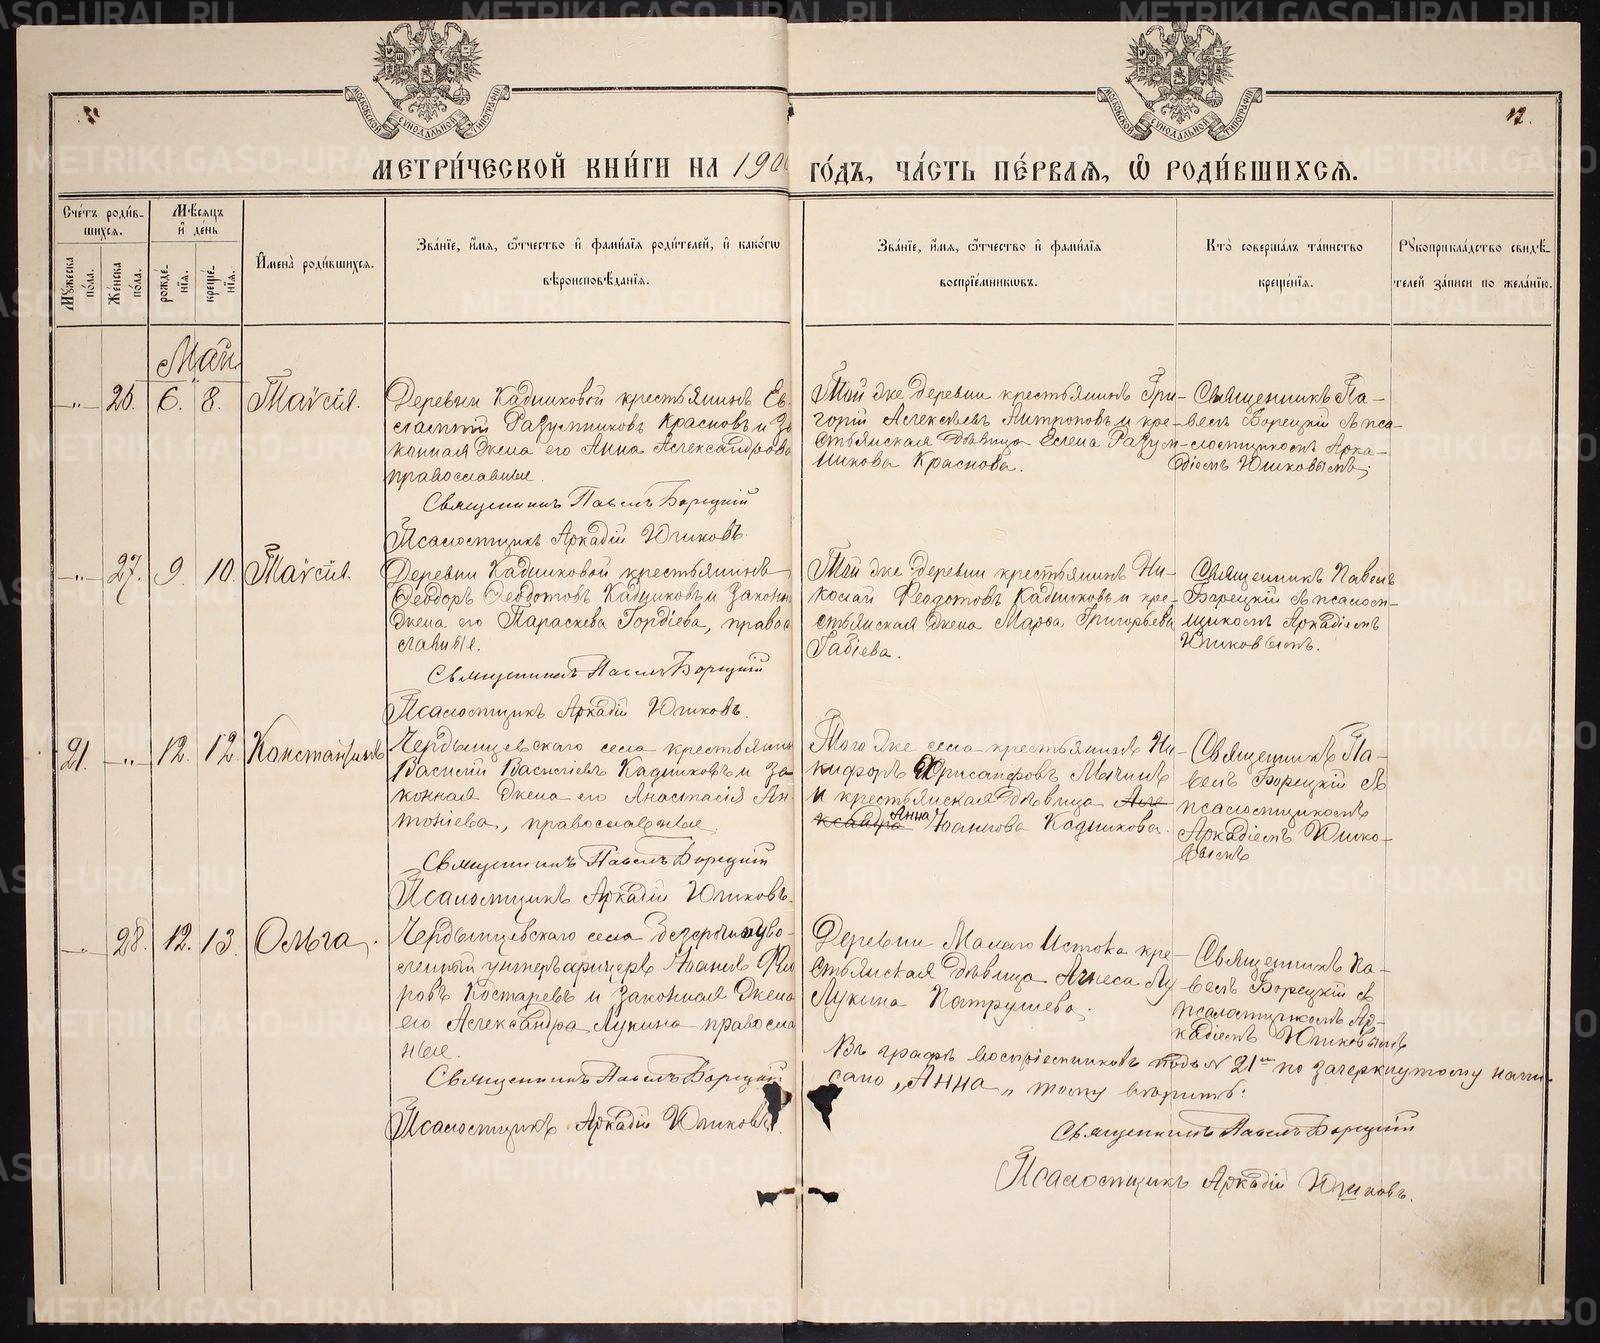 12.
МОСКОВСКОЙ СѴНОДАЛЬНОЙ ТИПОГРАФІИ
МОСКОВСКОЙ СѴНОДАЛЬНОЙ ТИПОГРАФІИ
МЕТРИ́ЧЕСКОЙ КНИ́ГИ НА 190 ГО́ДЪ, ЧА́СТЬ ПЕ́РВАѦ, Ѡ҆ РОДИ́ВШИХСѦ.
Сче́тъ роди́в-
шихсѧ.
Мѣсѧцъ
и҆ де́нь
Мꙋ́жеска по́ла.
Же́нска по́ла.
рожде́-нїѧ.
креще́-нїѧ.
И҆мена̀ роди́вшихсѧ.
Зва́нїе, и҆́мѧ, ѻ҆́тчество и҆ фами́лїѧ роди́телей, и҆ како́гѡ
вѣроисповѣ́данїѧ.
Зва́нїе, и҆́мѧ, ѻ҆́тчество и҆ фами́лїѧ
воспрїе́мникѡвъ.
Кто̀ соверша́лъ та́инство
креще́нїѧ.
Рꙋкоприкла́дство свидѣ́-
телей за́писи по жела́нїю.
Май
-„- 26. 6. 8. Таисія.
Деревни Кадниковой крестьянинъ Ев-
стафій Разумниковъ Красновъ и за
конная жена его Анна Александрова
православные.
Священникъ Павелъ Борецкій
Псаломщикъ Аркадій Юшковъ.
Той же деревни крестьянинъ Гри-
горій Алексѣевъ Антроповъ и кре-
стьянская дѣвица Елена Разум-
никова Краснова.
Священникъ Па-
велъ Борецкій съ пса-
ломщикомъ Арка-
діемъ Юшковымъ;
-„- 27. 9. 10. Таисія.
Деревни Кадниковой крестьянинъ
Ѳеодоръ Ѳеодотовъ Кадниковъ и законн
жена его Параскева Гордіева, правос
славные.
Священникъ Павелъ Борецкій
Псаломщикъ Аркадій Юшковъ.
Той же деревни крестьянинъ Ни-
колай Ѳеодотовъ Кадниковъ и кре-
стьянская жена Марѳа Григорьева
Священникъ Павелъ
Борецкій съ псалом-
щикомъ Аркадіемъ
Юшковымъ.
21. -„- 12. 12. Константинъ
Чердынцевскаго села крестьянинъ
Василій Васильевъ Кадниковъ и за
конная жена его Анастасія Ан-
тоніева, православные.
Священникъ Павелъ Борецкій
Псаломщикъ Аркадій Юшковъ.
Того же села крестьянинъ Ни-
кифоръ Хрисанфовъ Мычинъ
и крестьянская дѣвица Але
ксандра Анна Іоаннова Кадникова.
Священникъ Па-
велъ Борецкій съ
псаломщикомъ
Аркадіемъ Юшко-
вымъ
-„- 28. 12. 13. Ольга.
Чердынцевскаго села безсрочно уво-
ленный унтеръ офицеръ Іоаннъ
Костаревъ и законная жена
его Александра Лукина правосла
ные.
Священникъ Павелъ Борецкій
Псаломщикъ Аркадій Юшковъ.
Деревни Малаго Истока кре-
стьянская дѣвица Агнеса Лу
Лукина Патрушева.
Священникъ Па-
велъ Борецкій съ
псаломщикомъ Ар-
кадіемъ Юшковымъ
Въ графѣ воспріемниковъ подъ № 21мъ по зачеркнутому напи-
сано „Анна„ тому вѣрить.
Священникъ Павелъ Борецкій
Псаломщикъ Аркадій Юшковъ.
METRIKI.GASO-URAL.RU